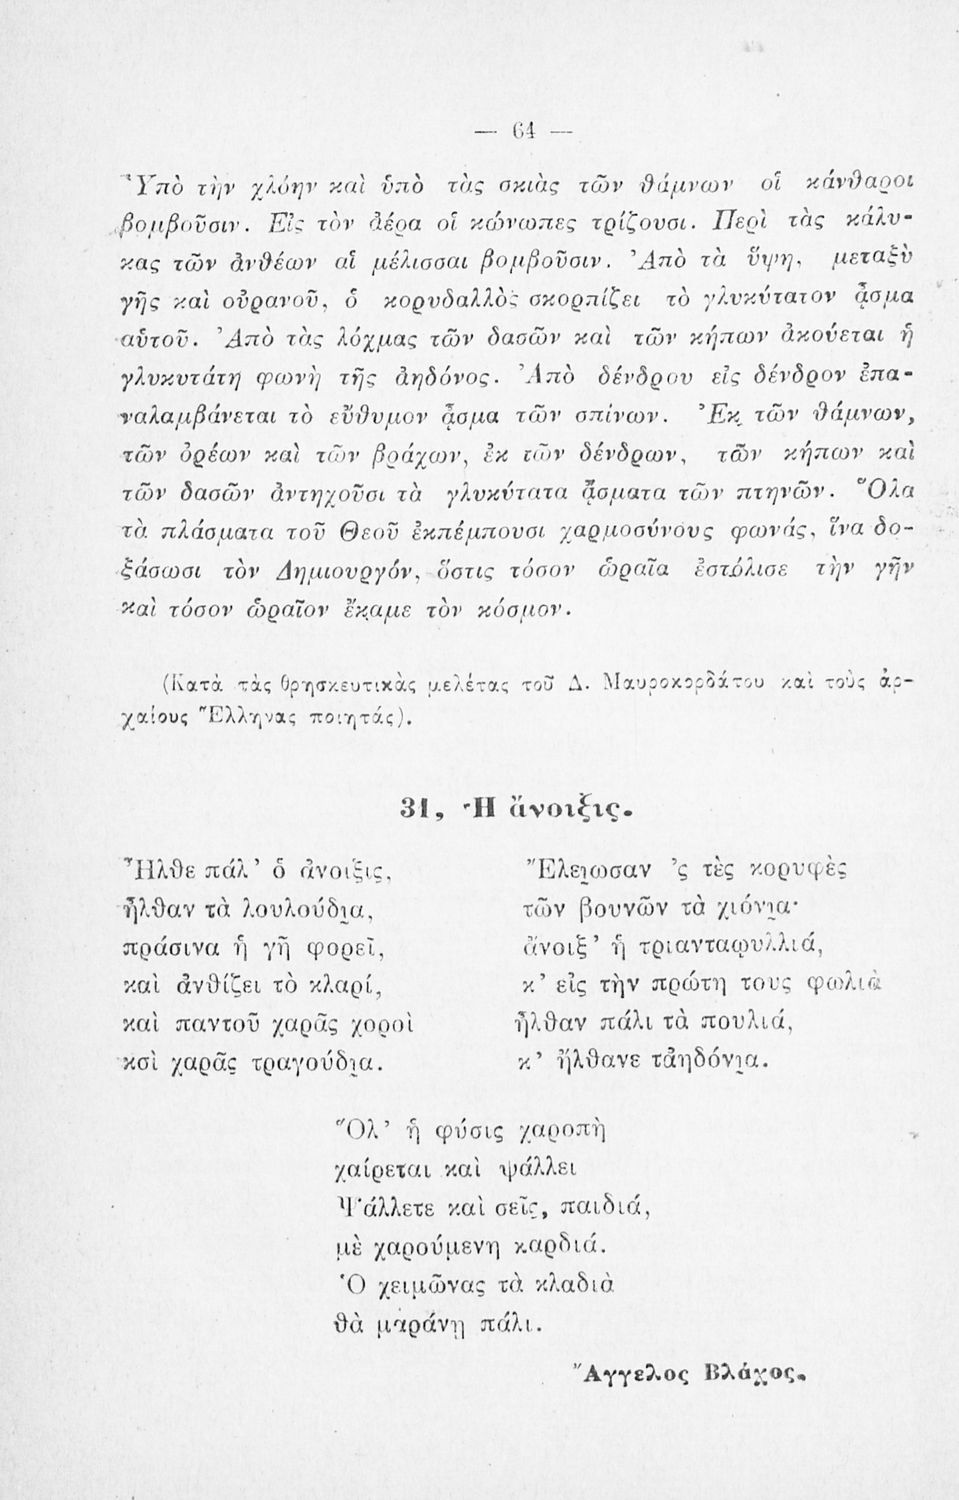 — 64 —
Ὑπὸ τὴν χλόην καὶ ὑπὸ τὰς σκιὰς τῶν θάμνων οἱ κάνθαροι
βομβοῦσιν. Εἰς τὸν ἀέρα οἱ κώνωπες τρίζουσι. Περὶ τὰς κάλυ-
κας τῶν ἀνθέων αἱ μέλισσαι βομβοῦσιν. Ἀπὸ τὰ ὕψη, μεταξὺ
γῆς καὶ οὐρανοῦ, ὁ κορυδαλλὸς σκορπίζει τὸ γλυκύτατον ᾆσμα
αὑτοῦ. Ἀπὸ τὰς λόχμας τῶν δασῶν καὶ τῶν κήπων ἀκούεται ἡ
γλυκυτάτη φωνὴ τῆς ἀηδόνος. Ἀπὸ δένδρου εἰς δένδρον ἐπα-
ναλαμβάνεται τὸ εὔθυμον ᾆσμα τῶν σπίνων. Ἐκ τῶν θάμνων,
τῶν ὀρέων καὶ τῶν βράχων, ἐκ τῶν δένδρων, τῶν κήπων καὶ
τῶν δασῶν ἀντηχοῦσι τὰ γλυκύτατα ᾄσματα τῶν πτηνῶν. Ὅλα
τὰ πλάσματα τοῦ Θεοῦ ἐκπέμπουσι χαρμοσύνους φωνάς, ἵνα δο-
ξάσωσι τὸν Δημιουργόν, ὅστις τόσον ὡραῖα ἐστόλισε τὴν γῆν
καὶ τόσον ὡραῖον ἔκαμε τὸν κόσμον.
(Κατὰ τὰς θρησκευτικὰς μελέτας τοῦ Δ. Μαυροκορδάτου καὶ τοὺς ἀρ-
χαίους Ἕλληνας ποιητάς).
31, Ἡ ἄνοιξις.
Ἦλθε πάλ’ ὁ ἀνοιξις,
ἦλθαν τὰ λουλούδι̯α,
πράσινα ἡ γῆ φορεῖ,
καὶ ἀνθίζει τὸ κλαρί,
καὶ παντοῦ χαρᾶς χοροὶ
κσὶ χαρᾶς τραγούδι̯α.
Ἔλει̯ωσαν ’ς τὲς κορυφὲς
τῶν βουνῶν τὰ χιόνι̯α·
ἄνοιξ’ ἡ τριανταφυλλιά,
κ’ εἰς τὴν πρώτη τους φωλιὰ
ἦλθαν πάλι τὰ πουλιά,
κ’ ἤλθανε τἀηδόνι̯α.
Ὅλ’ ἡ φύσις χαροπὴ
χαίρεται καὶ ψάλλει
Ψάλλετε καὶ σεῖς, παιδιά,
μὲ χαρούμενη καρδιά.
Ὁ χειμῶνας τὰ κλαδιὰ
θὰ μαράνῃ πάλι.
Ἄγγελος Βλάχος.